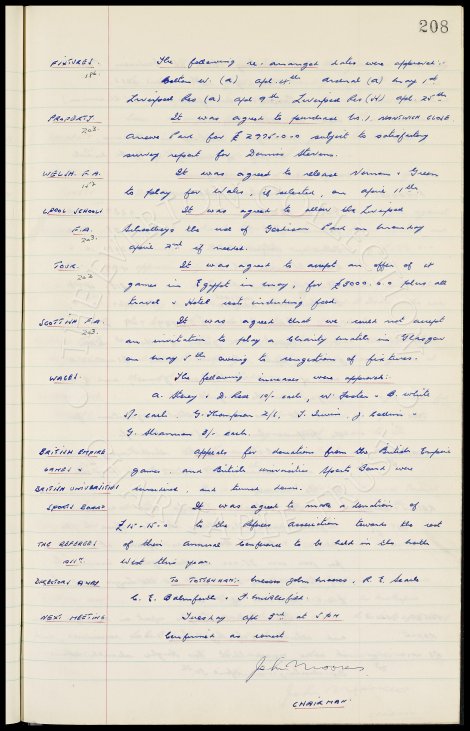 208
FIXTURES. The following re-arranged dates were approved:-
186. Bolton W. (A) Apl. 4th Arsenal (A) May 1st
Liverpool Res (A) Apl 9th Liverpool Res (H) Apl. 25th
PROPERTY It was agreed to purchase No. 1. NANTWICH CLOSE
203. Park for £ 2975.0.0 subject to satisfactory
survey report for Dennis Stevens.
WELSH. F.A. It was agreed to release Vernon & Green
to play for Wales, if selected, on April 11th.
LPOOL SCHOOLS It was agreed to allow the Liverpool
F.A. Schoolboys the use of Goodison Park on Monday
203. April 2nd if needed.
TOUR. It was agreed to accept an offer of 4
202 games in Egypt in May, for £3000.0.0 plus all
travel & Hotel costs including food
SCOTTISH F.A. It was agreed that we could not accept
203. an invitation to play a Charity match in Glasgow
on May 5th owing to congestion of fixtures.
WAGES. The following increases were approved:-
A. & D. 10/- each, W. & B. White
5/- each. G. Thompson 2/6, T. Irwin, J. &
G. Sharman 2/- each.
BRITISH EMPIRE Appeals for donations from the British Empire
GAMES & games and British Universities Sports Board were
BRITISH UNIVERSITIES considered, and turned down.
SPORTS BOARD It was agreed to make a donation of
£15-15-0 to the Referees Association towards the cost
THE REFEREES of their Annual Conference to be held in the North
ASS'N. West this year.
DIRECTORS AWAY. To TOTTENHAM:- Messrs John Moores, R. E. Searle
C. E. Balmforth & F. Micklesfield.
NEXT MEETING Tuesday Apl 3rd at 5 PM
Confirmed as correct
John Moores
CHAIRMAN.